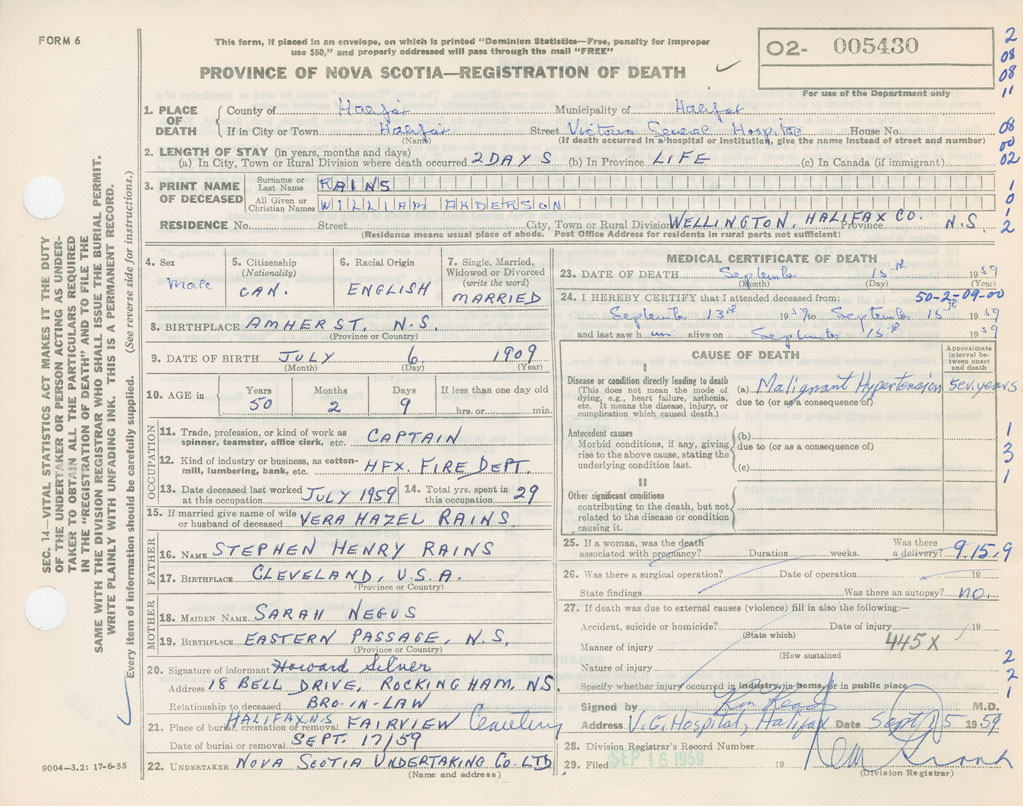 FORM 6
This form, if placed in an envelope, on which is printed "Dominion Statistics—Free, penalty for improper
use $50," and properly addressed will pass through the mail "FREE"
PROVINCE OF NOVA SCOTIA—REGISTRATION OF DEATH
O2- 005430
For use of the Department only
2
08
08
11
08
00
02
1
0
1
2
SEC. 14—VITAL STATISTICS ACT MAKES IT THE DUTY
OF THE UNDERTAKER OR PERSON ACTING AS UNDER-
TAKER TO OBTAIN ALL THE PARTICULARS REQUIRED
IN THE "REGISTRATION OF DEATH" AND TO FILE THE
SAME WITH THE DIVISION REGISTRAR WHO SHALL ISSUE THE BURIAL PERMIT.
WRITE PLAINLY WITH UNFADING INK. THIS IS A PERMANENT RECORD.
Every item of information should be carefully supplied. (See reverse side for instructions.)
1. PLACE OF DEATH
County of Halifax Municipality of Halifax
If in City or Town Halifax Street Victoria General Hospital House No.
(Name) (If death occurred in a hospital or institution, give the name instead of street and number)
2. LENGTH OF STAY (in years, months and days)
(a) In City, Town or Rural Division where death occurred 2 DAYS (b) In Province LIFE (c) In Canada (if immigrant)
3. PRINT NAME OF DECEASED
Surname or Last Name RAINS
All Given or Christian Names WILLIAM ANDERSON
RESIDENCE No. Street City, Town or Rural Division WELLINGTON, HALIFAX CO. Province N.S.
(Residence means usual place of abode. Post Office Address for residents in rural parts not sufficient)
4. Sex
Male
5. Citizenship
(Nationality)
CAN.
6. Racial Origin
ENGLISH
7. Single, Married,
Widowed or Divorced
(write the word)
MARRIED
8. BIRTHPLACE AMHERST, N.S.
(Province or Country)
9. DATE OF BIRTH JULY 6 1909
(Month) (Day) (Year)
10. AGE in
Years 50
Months 2
Days 9
If less than one day old
hrs. or min.
OCCUPATION
11. Trade, profession, or kind of work as
spinner, teamster, office clerk, etc. CAPTAIN
12. Kind of industry or business, as cotton-
mill, lumbering, bank, etc. HFX. FIRE DEPT.
13. Date deceased last worked
at this occupation JULY 1959
14. Total yrs. spent in
this occupation 29
15. If married give name of wife
or husband of deceased VERA HAZEL RAINS
FATHER
16. NAME STEPHEN HENRY RAINS
17. BIRTHPLACE CLEVELAND, U.S.A.
(Province or Country)
MOTHER
18. MAIDEN NAME SARAH NEGUS
19. BIRTHPLACE EASTERN PASSAGE, N.S.
(Province or Country)
20. Signature of informant Howard Silver
Address 18 BELL DRIVE, ROCKINGHAM, N.S.
Relationship to deceased BRO-IN-LAW
21. Place of burial, cremation or removal HALIFAX N.S FAIRVIEW Cemetery
Date of burial or removal SEPT. 17/59
22. UNDERTAKER NOVA SCOTIA UNDERTAKING CO. LTD
(Name and address)
9004-3.2: 17-6-55
MEDICAL CERTIFICATE OF DEATH
23. DATE OF DEATH September 15th 1959
(Month) (Day) (Year)
24. I HEREBY CERTIFY that I attended deceased from: 50-2-09-00
September 13th 1959 to September 15th 1959
and last saw him alive on September 15th 1959
CAUSE OF DEATH
Approximate
interval be-
tween onset
and death
I
Disease or condition directly leading to death
(This does not mean the mode of
dying, e.g., heart failure, asthenia,
etc. It means the disease, injury, or
complication which caused death.)
(a) Malignant Hypertension sev. years
due to (or as a consequence of)
Antecedent causes
Morbid conditions, if any, giving
rise to the above cause, stating the
underlying condition last.
(b)
due to (or as a consequence of)
(c)
1
3
1
II
Other significant conditions
contributing to the death, but not
related to the disease or condition
causing it.
25. If a woman, was the death
associated with pregnancy? Duration weeks. Was there
a delivery? 9.15.9
26. Was there a surgical operation? Date of operation 19
State findings Was there an autopsy? no.
27. If death was due to external causes (violence) fill in also the following:—
Accident, suicide or homicide? Date of injury 19
(State which)
Manner of injury 445X
(How sustained
Nature of injury
Specify whether injury occurred in industry, in home, or in public place
2
2
1
Signed by M.D.
Address V.G. Hospital, Halifax Date Sept 15 1959
28. Division Registrar's Record Number
29. Filed SEP 16 1959 19
(Division Registrar)